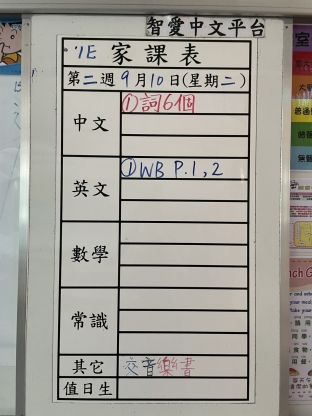 智愛中文平台
1E 家課表
第二週9月10日(星期二)
中文 ①詞6個
英文 ①WB P.1,2
數學
常識
其它 交音樂書
值日生